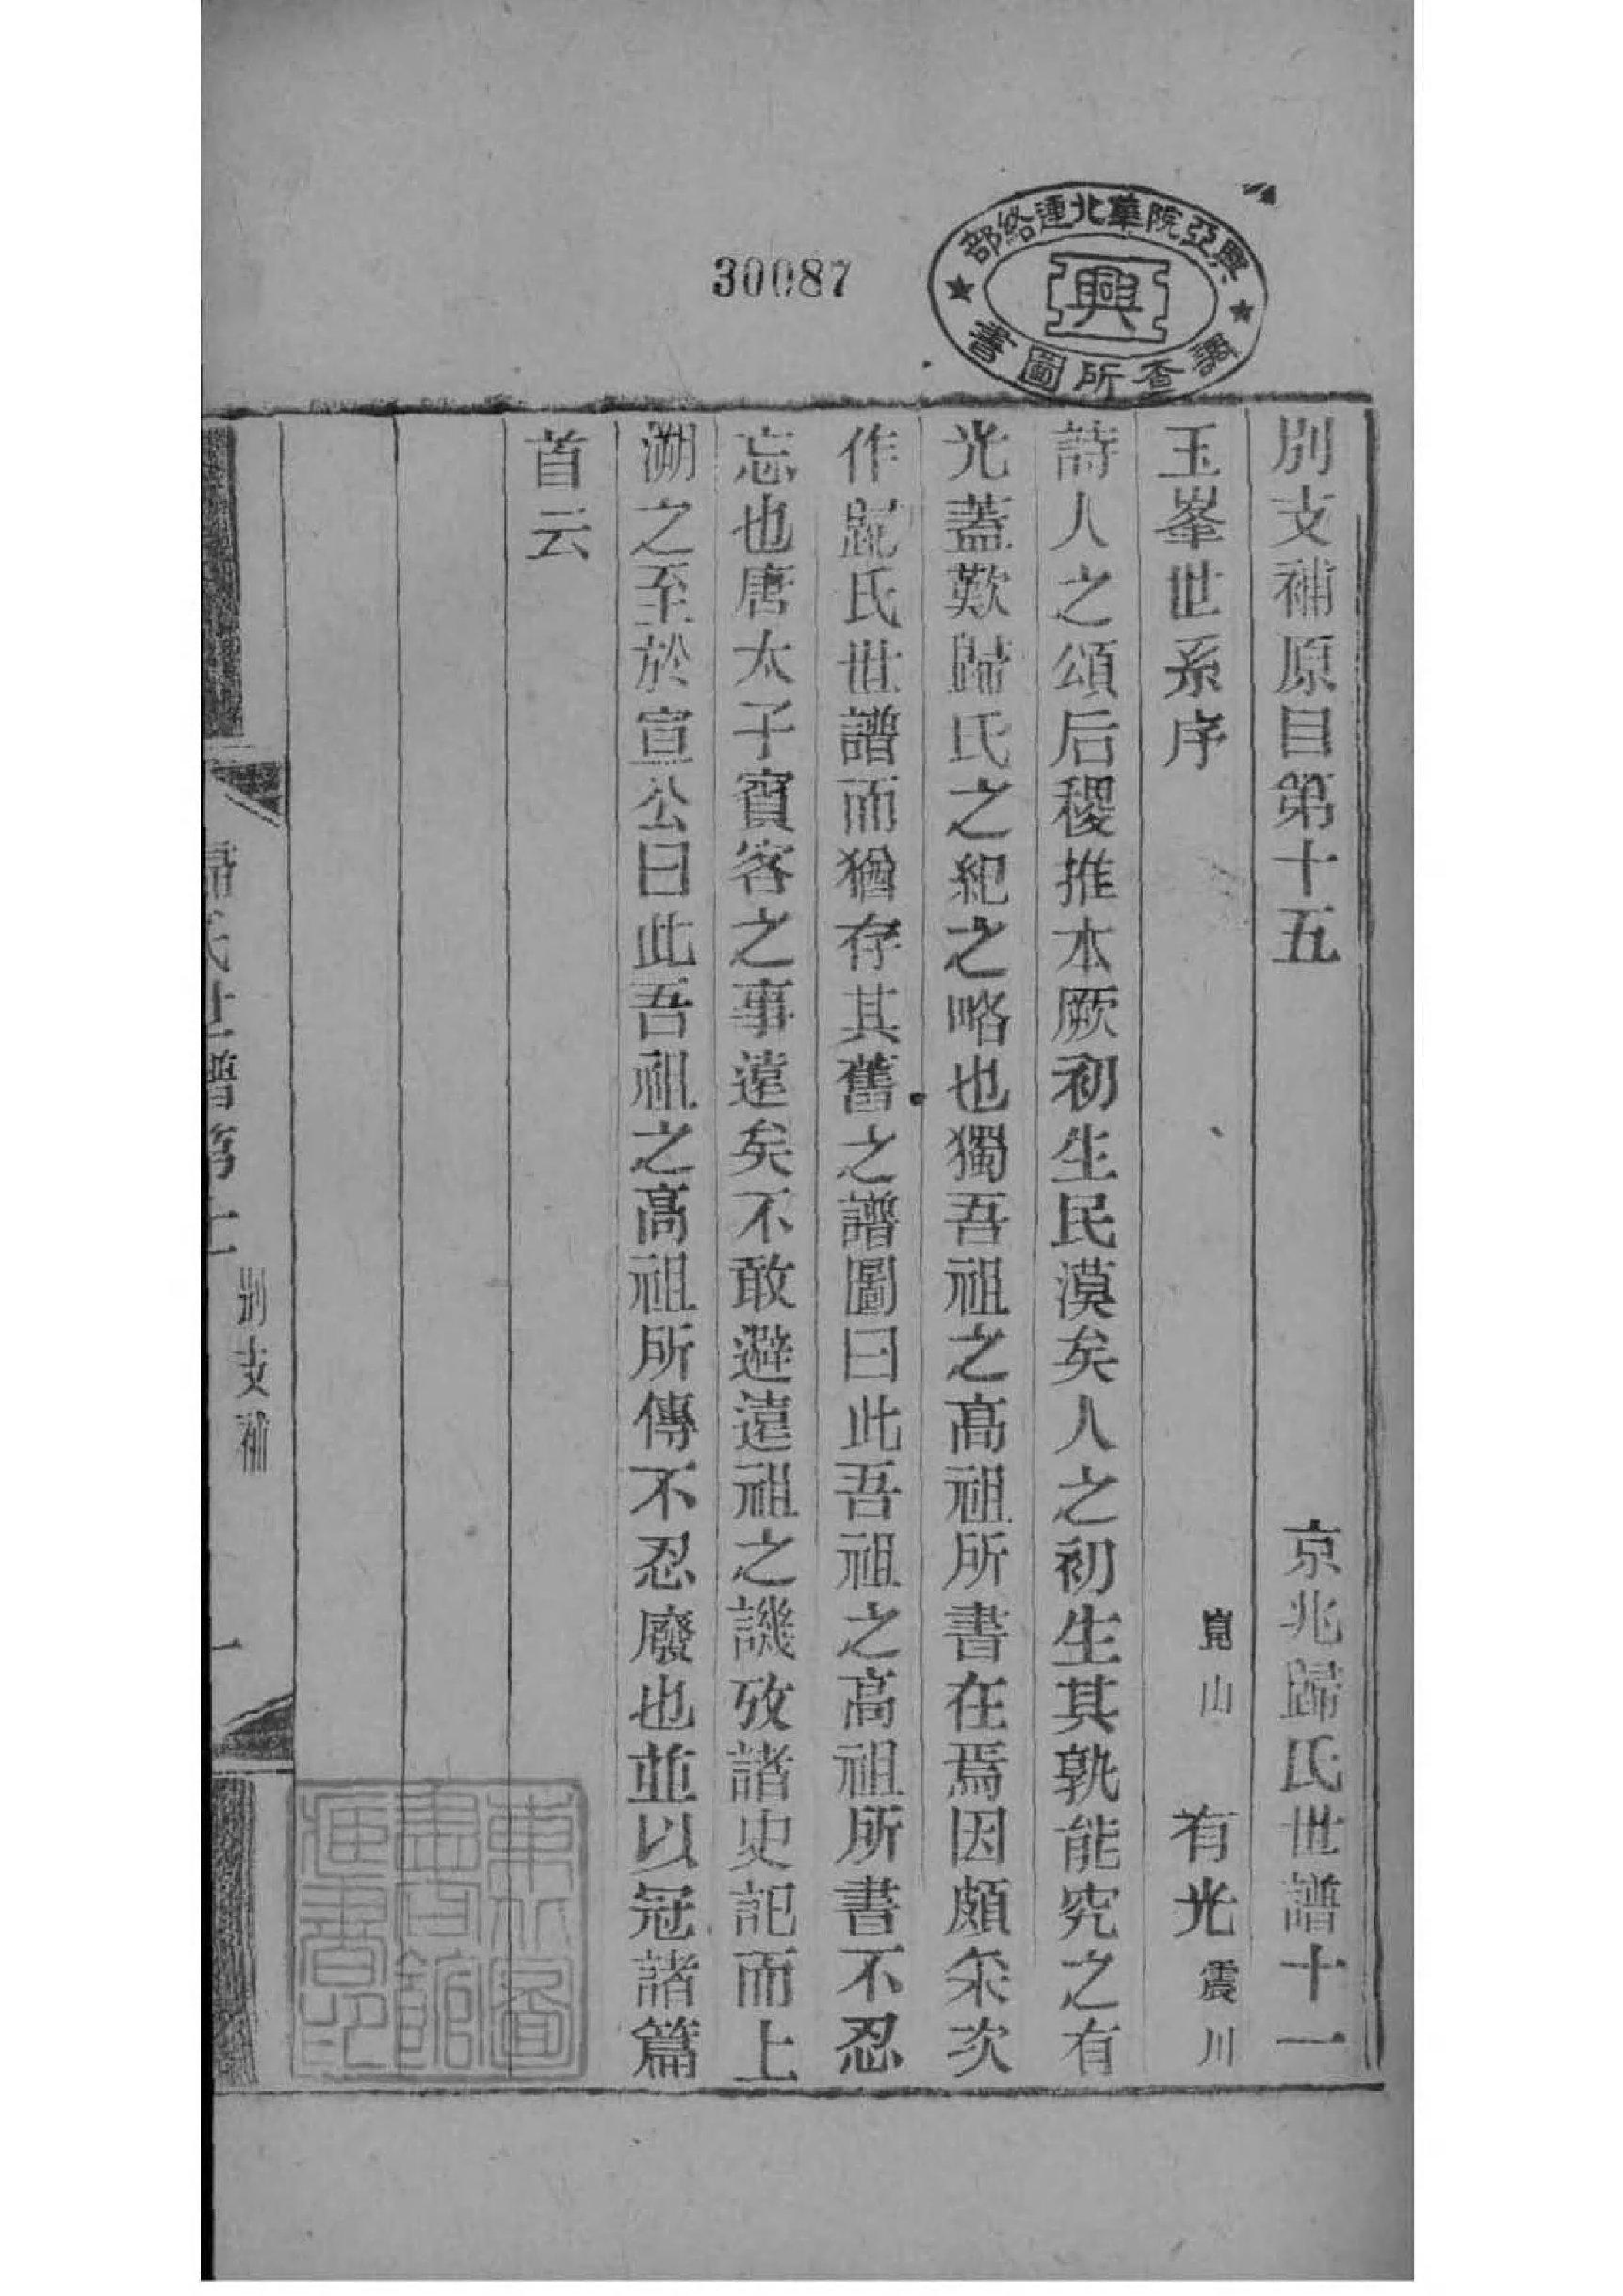 30087
興亞院華北連絡部
調查所圖書
興
別支補原目第十五 京兆歸氏世譜十一
玉峯世系序 崑山 有光 震川
詩人之頌后稷推本厥初生民漠矣人之初生其孰能究之有
光蓋歎歸氏之紀之略也獨吾祖之高祖所書在焉因頗采次
作歸氏世譜而猶存其舊之譜圖曰此吾祖之高祖所書不忍
忘也唐太子賓客之事遠矣不敢避遠祖之譏攷諸史記而上
溯之至於宣公曰此吾祖之高祖所傳不忍廢也並以冠諸篇
首云
歸氏世譜第十一 別支補 一
東洋文庫